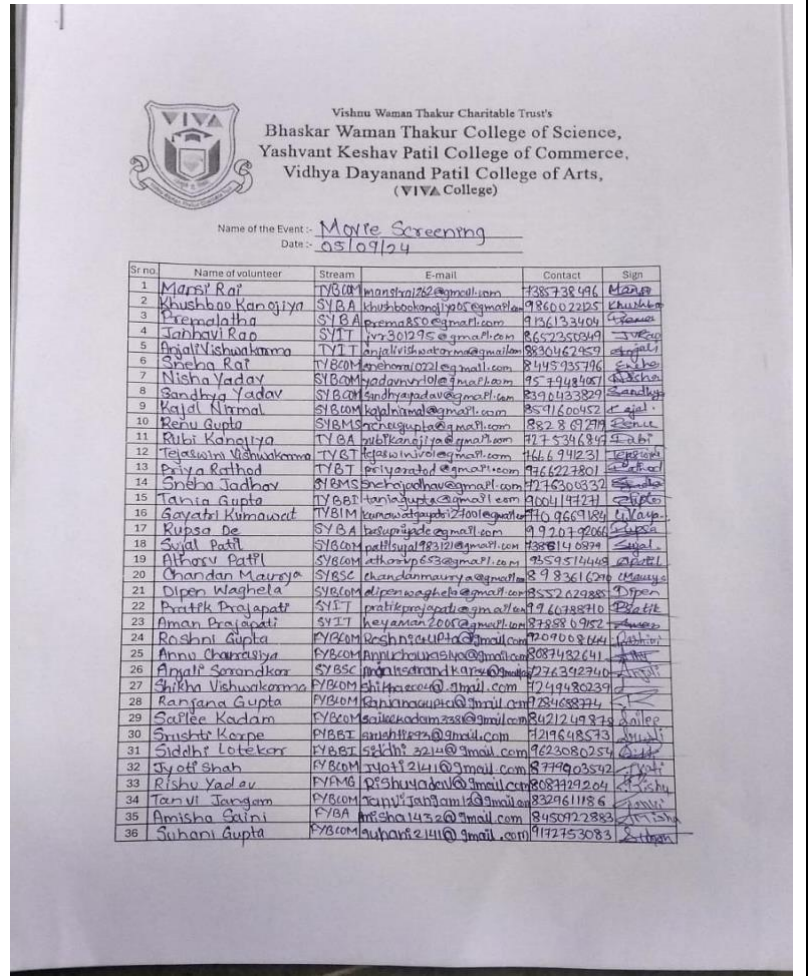 VIVA
Vishnu Waman Thakur Charitable Trust's
Bhaskar Waman Thakur College of Science,
Yashvant Keshav Patil College of Commerce,
Vidhya Dayanand Patil College of Arts,
(VIVA College)
Name of the Event :- Movie Screening
Date :- 05/09/24
Sr no. Name of volunteer Stream E-mail Contact Sign
1 Mansi Rai TYBCOM mansirai262@gmail.com 7385738496 Mansi
2 Khushboo Kanojiya SYBA khushbookanojiya05@gmail.com 9860022125 Khushboo
3 Premalatha SYBA prema850@gmail.com 9136133404
4 Janhavi Rao SYIT jvr301295@gmail.com 8652350349 JVRao
5 Anjali Vishwakarma TYIT anjalivishwakarma@gmail.com 8830462959 Anjali
6 Sneha Rai TYBCOM sneharai0221@gmail.com 8445935796 Sneha
7 Nisha Yadav SYBCOM 9579484051 Nisha
8 Sandhya Yadav SYBCOM sandhyayadav@gmail.com 8390433829 Sandhya
9 Kajal Nirmal SYBCOM kajalnirmal@gmail.com 8591600452 Kajal.
10 Renu Gupta SYBMS renugupta@gmail.com 8828692719 Renu
11 Rubi Kanojiya TYBA rubikanojiya@gmail.com 7275346847 Rubi
12 Tejaswini Vishwakarma TYBI 7666941231
13 Priya Rathod TYBI priyaratod@gmail.com 9766227801
14 Sneha Jadhav SYBMS snehajadhav@gmail.com 7276300332
15 Tania Gupta TYBBI taniagupta@gmail.com 9004197271 Gupta
16 Gayatri Kumawat TYBIM 7709669184
17 Rupsa De SYBA 9920792066 Rupsa
18 Sujal Patil SYBCOM patilsujal983121@gmail.com 7385140879 Sujal.
19 Atharv Patil SYBCOM atharvp653@gmail.com 9359514448 Apatil
20 Chandan Maurya SYBSC chandanmaurya@gmail.com 8983616290 CMaurya
21 Dipen Waghela SYBCOM dipenwaghela@gmail.com 8552029885 Dipen
22 Pratik Prajapati SYIT pratikprajapati@gmail.com 9960788710 Pratik
23 Aman Prajapati SYIT heyaman2005@gmail.com 8788809152 Aman
24 Roshni Gupta FYBCOM RoshniGupta@gmail.com 9209008644 Roshni
25 Annu Chaurasiya FYBCOM Annuchaurasiya@gmail.com 8087432641
26 Anjali Sarandkar SYBSC 7276392740 Anjali
27 Shikha Vishwakarma FYBCOM 7249480239
28 Ranjana Gupta FYBCOM Ranjanagupta@gmail.com 9284688774
29 Sailee Kadam FYBCOM saileekadam338@gmail.com 8421249879 Sailee
30 Srushti Karpe FYBBI 7219648573
31 Siddhi Lotekar FYBBI siddhi3214@gmail.com 9623080254
32 Jyoti Shah FYBCOM Jyoti2141@gmail.com 8779903542 Jyoti
33 Rishu Yadav FYFMG Rishuyadav@gmail.com 8087729204 Rishu
34 Tanvi Jangam FYBCOM TanviJangam12@gmail.com 8329611186 Tanvi
35 Amisha Saini FYBA Amisha1432@gmail.com 8450922883 Amisha
36 Suhani Gupta FYBCOM suhani2141@gmail.com 9172753083